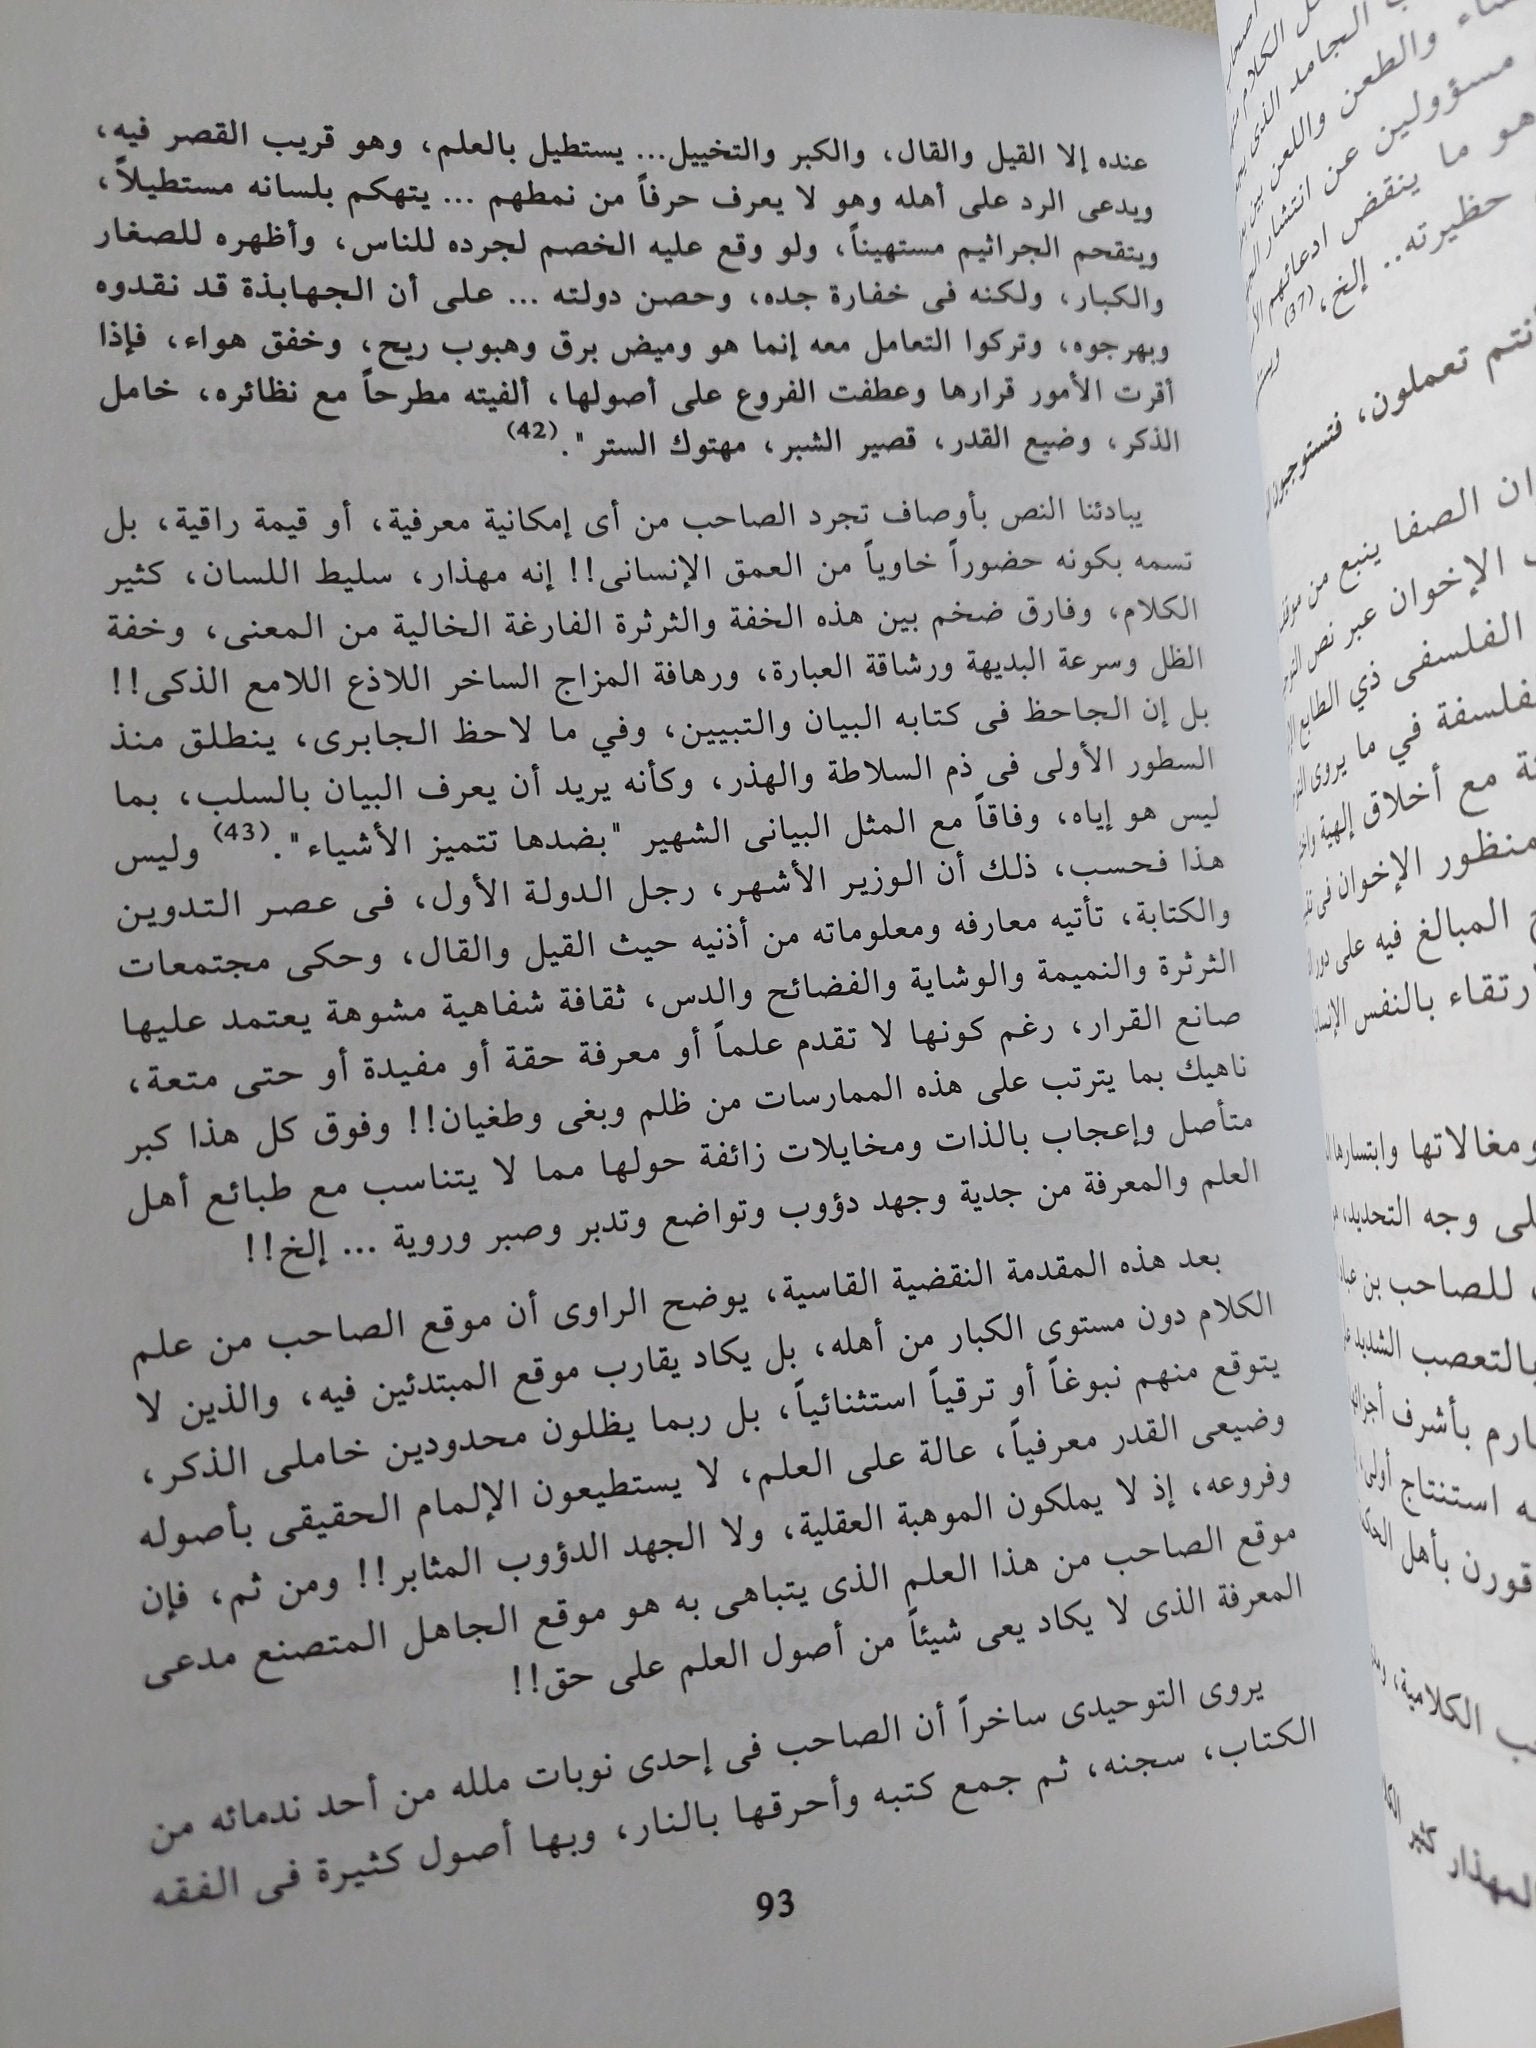 عنده إلا القيل والقال، والكبر والتخييل... يستطيل بالعلم، وهو قريب القصر فيه،
ويدعى الرد على أهله وهو لا يعرف حرفاً من نمطهم ... يتهكم بلسانه مستطيلاً،
ويتقحم الجراثيم مستهيناً، ولو وقع عليه الخصم لجرده للناس، وأظهره للصغار
والكبار، ولكنه فى خفارة جده، وحصن دولته ... على أن الجهابذة قد نقدوه
وبهرجوه، وتركوا التعامل معه إنما هو وميض برق وهبوب ريح، وخفق هواء، فإذا
أقرت الأمور قرارها وعطفت الفروع على أصولها، ألفيته مطرحاً مع نظائره، خامل
الذكر، وضيع القدر، قصير الشبر، مهتوك الستر".(42)
يبادئنا النص بأوصاف تجرد الصاحب من أى إمكانية معرفية، أو قيمة راقية، بل
تسمه بكونه حضوراً خاوياً من العمق الإنسانى!! إنه مهذار، سليط اللسان، كثير
الكلام، وفارق ضخم بين هذه الخفة والثرثرة الفارغة الخالية من المعنى، وخفة
الظل وسرعة البديهة ورشاقة العبارة، ورهافة المزاج الساخر اللاذع اللامع الذكى!!
بل إن الجاحظ فى كتابه البيان والتبيين، وفي ما لاحظ الجابرى، ينطلق منذ
السطور الأولى فى ذم السلاطة والهذر، وكأنه يريد أن يعرف البيان بالسلب، بما
ليس هو إياه، وفاقاً مع المثل البيانى الشهير "بضدها تتميز الأشياء".(43) وليس
هذا فحسب، ذلك أن الوزير الأشهر، رجل الدولة الأول، فى عصر التدوين
والكتابة، تأتيه معارفه ومعلوماته من أذنيه حيث القيل والقال، وحكى مجتمعات
الثرثرة والنميمة والوشاية والفضائح والدس، ثقافة شفاهية مشوهة يعتمد عليها
صانع القرار، رغم كونها لا تقدم علماً أو معرفة حقة أو مفيدة أو حتى متعة،
ناهيك بما يترتب على هذه الممارسات من ظلم وبغى وطغيان!! وفوق كل هذا كبر
متأصل وإعجاب بالذات ومخايلات زائفة حولها مما لا يتناسب مع طبائع أهل
العلم والمعرفة من جدية وجهد دؤوب وتواضع وتدبر وصبر وروية ... إلخ!!
بعد هذه المقدمة النقضية القاسية، يوضح الراوى أن موقع الصاحب من علم
الكلام دون مستوى الكبار من أهله، بل يكاد يقارب موقع المبتدئين فيه، والذين لا
يتوقع منهم نبوغاً أو ترقياً استثنائياً، بل ربما يظلون محدودين خاملى الذكر،
وضيعى القدر معرفياً، عالة على العلم، لا يستطيعون الإلمام الحقيقى بأصوله
وفروعه، إذ لا يملكون الموهبة العقلية، ولا الجهد الدؤوب المثابر!! ومن ثم، فإن
موقع الصاحب من هذا العلم الذى يتباهى به هو موقع الجاهل المتصنع مدعى
المعرفة الذى لا يكاد يعى شيئاً من أصول العلم على حق!!
يروى التوحيدى ساخراً أن الصاحب فى إحدى نوبات ملله من أحد ندمائه من
الكتاب، سجنه، ثم جمع كتبه وأحرقها بالنار، وبها أصول كثيرة فى الفقه
93
الجامد الذى
والطعن واللعن بين
مسؤولين عن انتشار
هو ما ينقض ادعائهم
حظيرته.. إلخ،(37)
تعملون، فتستوجبون
الصفا ينبع من
الإخوان عبر نص
الفلسفى ذي الطابع
فى ما يروى
مع أخلاق إلهية
منظور الإخوان فى
المبالغ فيه على دور
بالنفس
ومغالاتها وابتسارها
وجه التحديد،
للصاحب بن
بالتعصب الشديد
بأشرف
استنتاج
قورن بأهل
الكلامية،
المهذار كثير